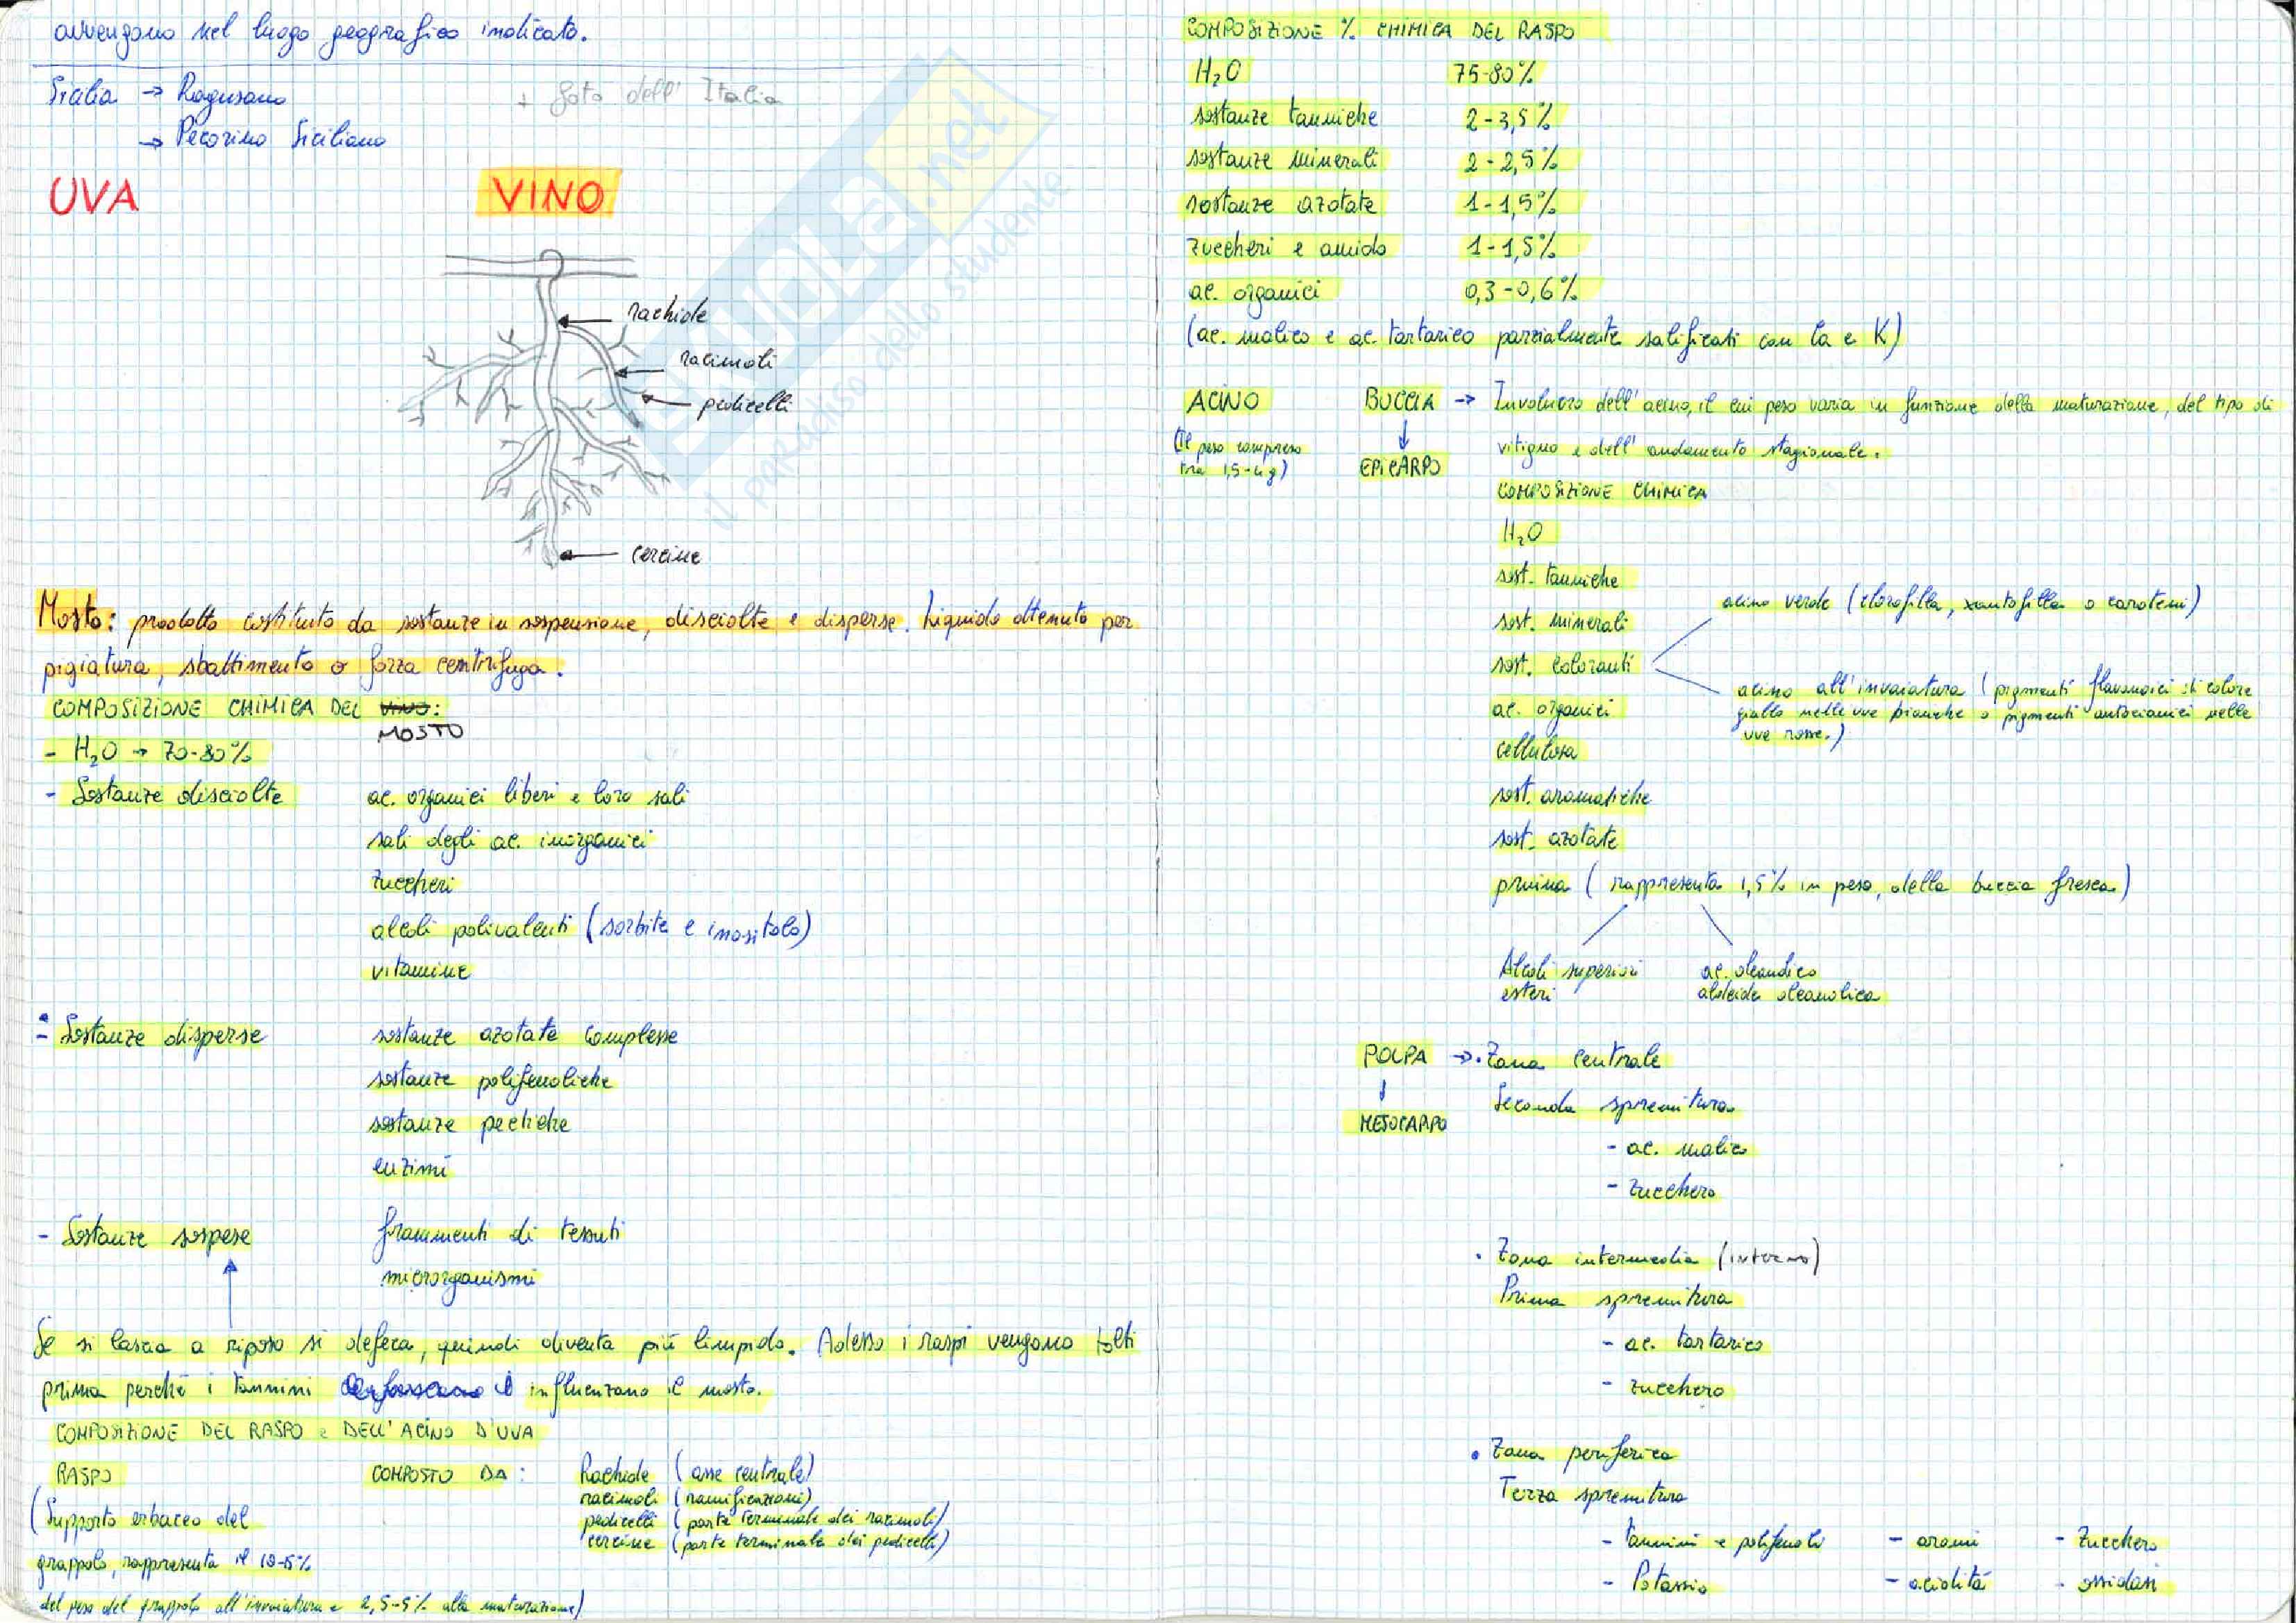 avvengono nel luogo geografico indicato.
Sicilia → Ragusano
+ foto dell'Italia
→ Pecorino Siciliano
UVA
VINO
rachide
racimoli
pedicelli
cercine
SKUOLA.net
il paradiso dello studente
Mosto: prodotto costituito da sostanze in sospensione, disciolte e disperse. Liquido ottenuto per
pigiatura, sbattimento o forza centrifuga.
COMPOSIZIONE CHIMICA DEL VINO:
MOSTO
- H₂O → 70-80%
- Sostanze disciolte
ac. organici liberi e loro sali
sali degli ac. inorganici
zuccheri
alcoli polivalenti (sorbite e inositolo)
vitamine
- Sostanze disperse
sostanze azotate complesse
sostanze polifenoliche
sostanze pectiche
enzimi
- Sostanze sospese
frammenti di tessuti
microrganismi
Se si lascia a riposo si defeca, quindi diventa più limpido. Adesso i raspi vengono tolti
prima perché i tannini influenzano il mosto.
COMPOSIZIONE DEL RASPO e DELL'ACINO D'UVA
RASPO
COMPOSTO DA:
Rachide (asse centrale)
racimoli (ramificazioni)
pedicelli (parte terminale dei racimoli)
cercine (parte terminale dei pedicelli)
(Supporto erbaceo del
grappolo, rappresenta il
del peso del grappolo all'invaiatura e 2,5-5% alla maturazione)
COMPOSIZIONE % CHIMICA DEL RASPO
H₂O 75-80%
sostanze tanniche 2-3,5%
sostanze minerali 2-2,5%
sostanze azotate 1-1,5%
zuccheri e amido 1-1,5%
ac. organici 0,3-0,6%
(ac. malico e ac. tartarico parzialmente salificati con Ca e K)
ACINO
(Il peso compreso
tra 1,5-4g)
BUCCIA → Involucro dell'acino, il cui peso varia in funzione della maturazione, del tipo di
vitigno e dell'andamento stagionale.
↓
EPICARPO
COMPOSIZIONE CHIMICA
H₂O
sost. tanniche
sost. minerali
sost. coloranti
acino verde (clorofilla, xantofilla o caroteni)
acino all'invaiatura (pigmenti flavonoici di colore
giallo nelle uve bianche o pigmenti antocianici nelle
uve rosse.)
ac. organici
cellulosa
sost. aromatiche
sost. azotate
pruina (rappresenta 1,5% in peso, della buccia fresca)
Alcoli superiori
esteri
ac. oleandico
aldeide oleanolica
POLPA → • Zona centrale
↓
MESOCARPO
Seconda spremitura
- ac. malico
- zucchero
• Zona intermedia (interno)
Prima spremitura
- ac. tartarico
- zucchero
• Zona periferica
Terza spremitura
- tannini e polifenoli - aromi - Zucchero
- Potassio - acidità - ossidasi